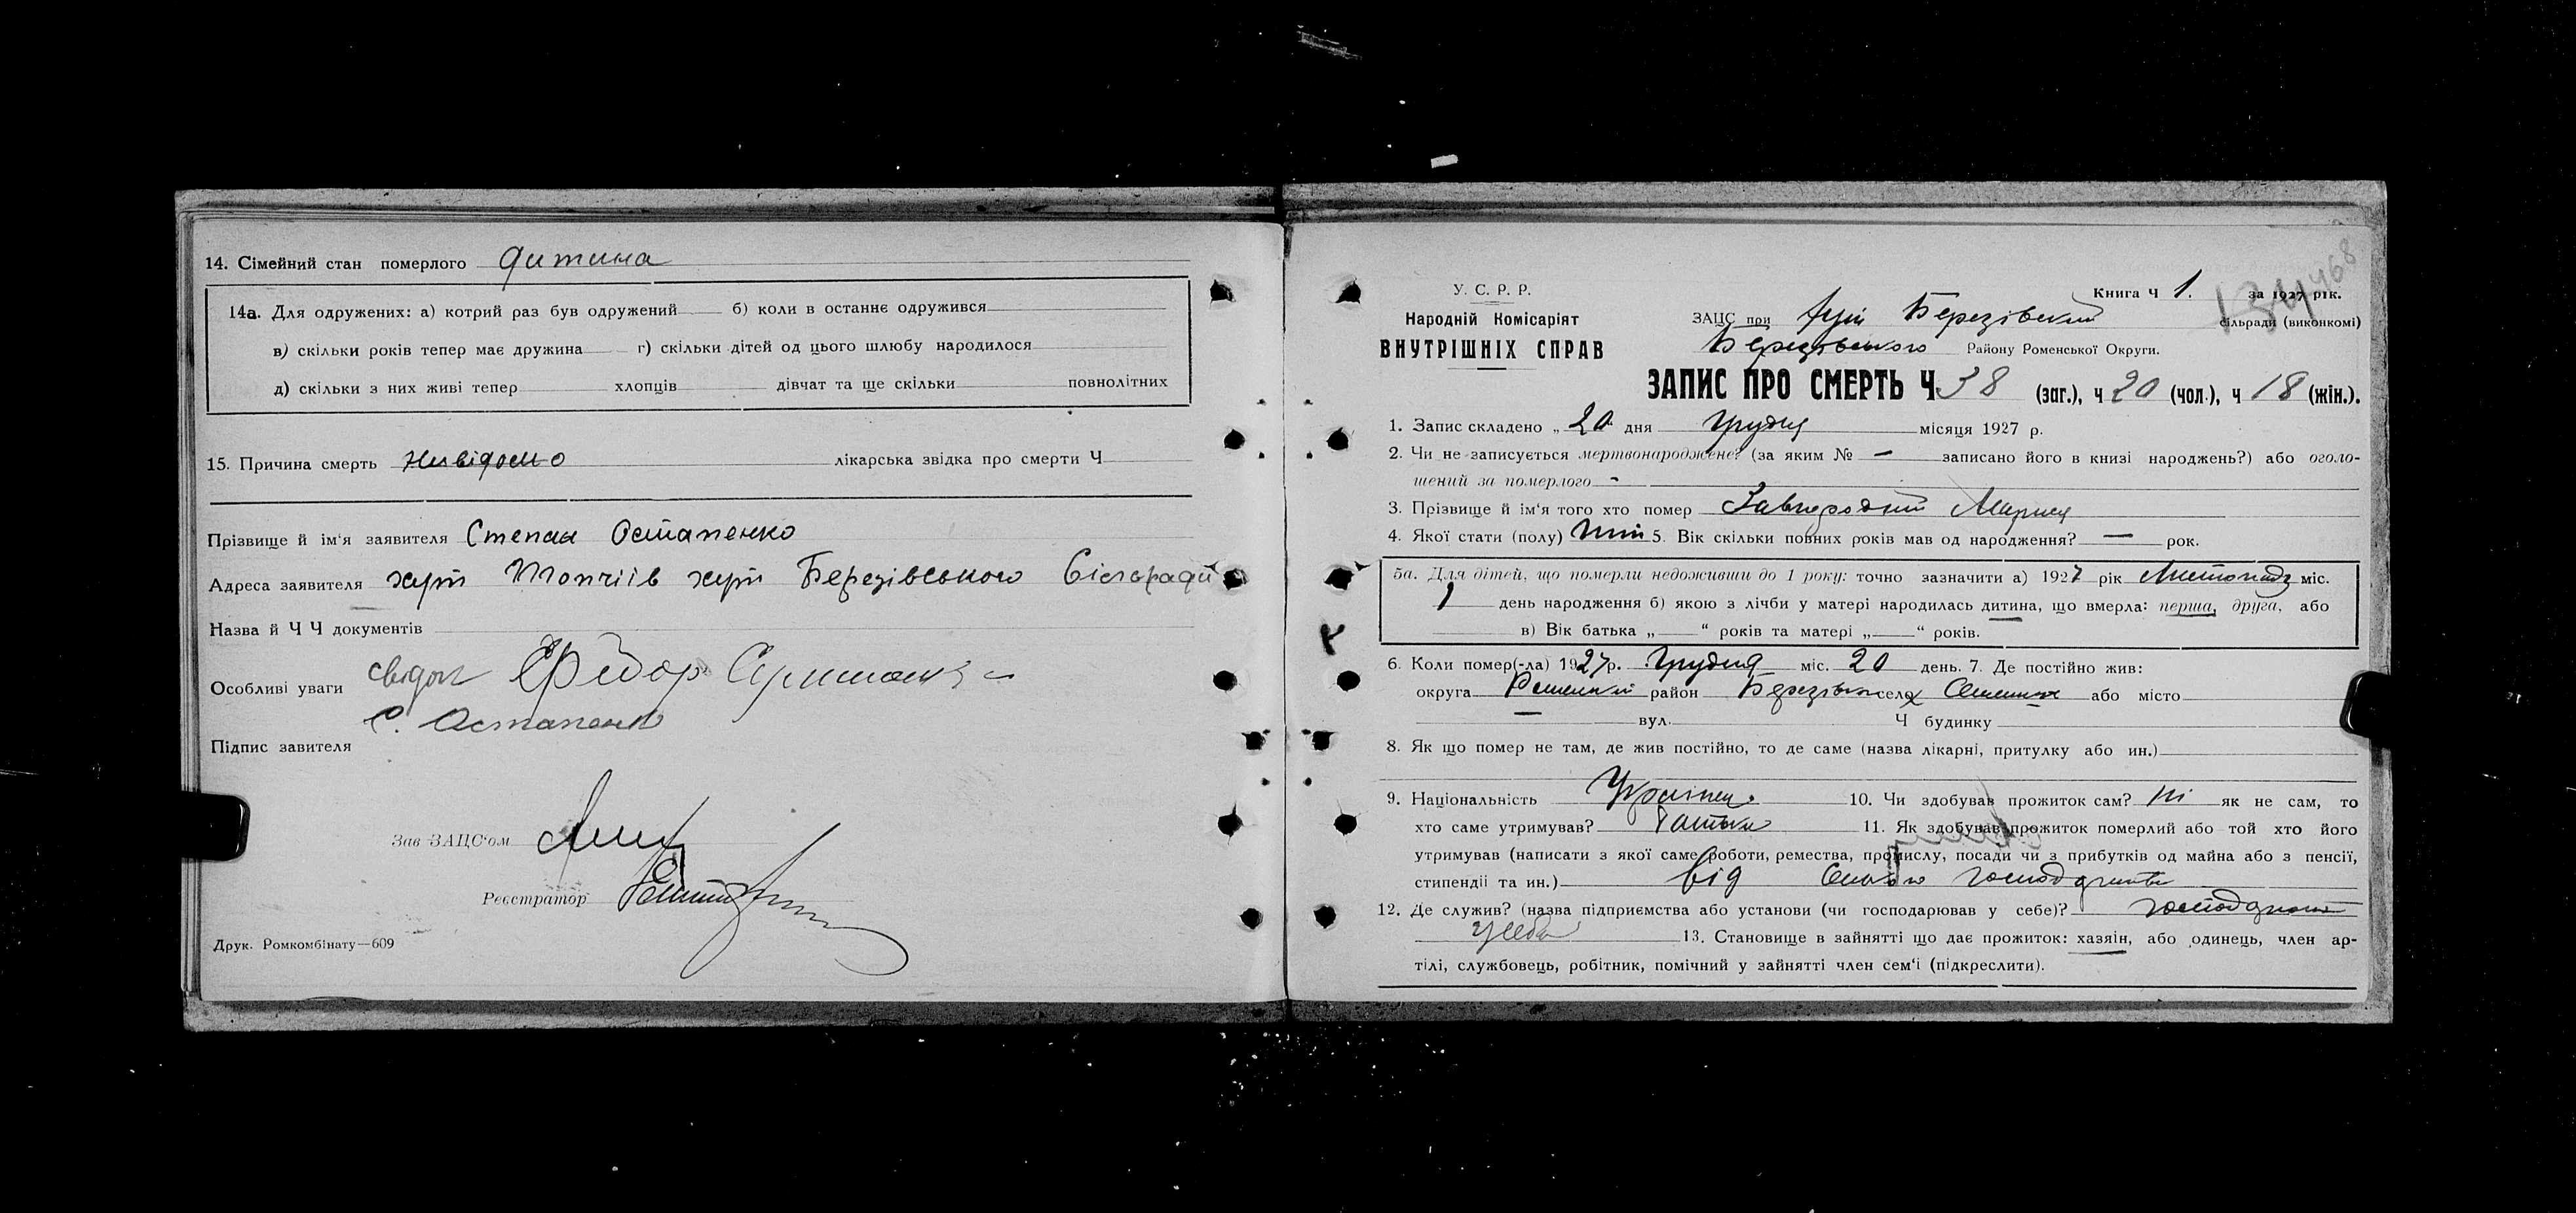 14. Сімейний стан померлого дитина
14а. Для одружених: а) котрий раз був одружений б) коли в останнє одружився
в) скільки років тепер має дружина г) скільки дітей од цього шлюбу народилося
д) скільки з них живі тепер хлопців дівчат та ще скільки повнолітних
15. Причина смерть невідомо лікарська звідка про смерти Ч
Прізвище й ім'я заявителя Степан Остапенко
Адреса заявителя хут Топчіїв хут Березівського Сільради
Назва й Ч Ч документів
Особливі уваги свідок Федор
С. Остапенко
Підпис завителя
Зав ЗАЦС'ом
Реєстратор
Друк. Ромкомбінату—609
134 468
У. С. Р. Р.
Народній Комісаріят
ВНУТРІШНІХ СПРАВ
Книга Ч 1. за 1927 рік.
ЗАЦС при Березівский сільради (виконкомі)
Березівського Району Роменської Округи.
ЗАПИС ПРО СМЕРТЬ Ч 38 (заг.), ч 20 (чол.), ч 18 (жін.).
1. Запис складено „ 20 дня Грудня місяця 1927 р.
2. Чи не записується мертвонароджене? (за яким № — записано його в книзі народжень?) або оголо-
шений за померлого -
3. Прізвище й ім'я того хто помер Завгородній Мария
4. Якої стати (полу) 5. Вік скільки повних років мав од народження? — рок.
5а. Для дітей, що померли недоживши до 1 року: точно зазначити а) 1927 рік Листопад міс.
1 день народження б) якою з лічби у матері народилась дитина, що вмерла: перша, друга, або
в) Вік батька „—“ років та матері „—“ років.
6. Коли помер(-ла) 1927 р. Грудня міс. 20 день. 7. Де постійно жив:
округа район село або місто
вул. Ч будинку
8. Як що помер не там, де жив постійно, то де саме (назва лікарні, притулку або ин.)
9. Національність Українец 10. Чи здобував прожиток сам? ні як не сам, то
хто саме утримував? Батьки 11. Як здобував прожиток померлий або той хто його
утримував (написати з якої саме роботи, ремества, промислу, посади чи з прибутків од майна або з пенсії,
стипендії та ин.) від господарства
12. Де служив? (назва підприємства або установи (чи господарював у себе)?
у себе 13. Становище в зайнятті що дає прожиток: хазяїн, або одинець, член ар-
тілі, службовець, робітник, помічний у зайнятті член сем'ї (підкреслити).